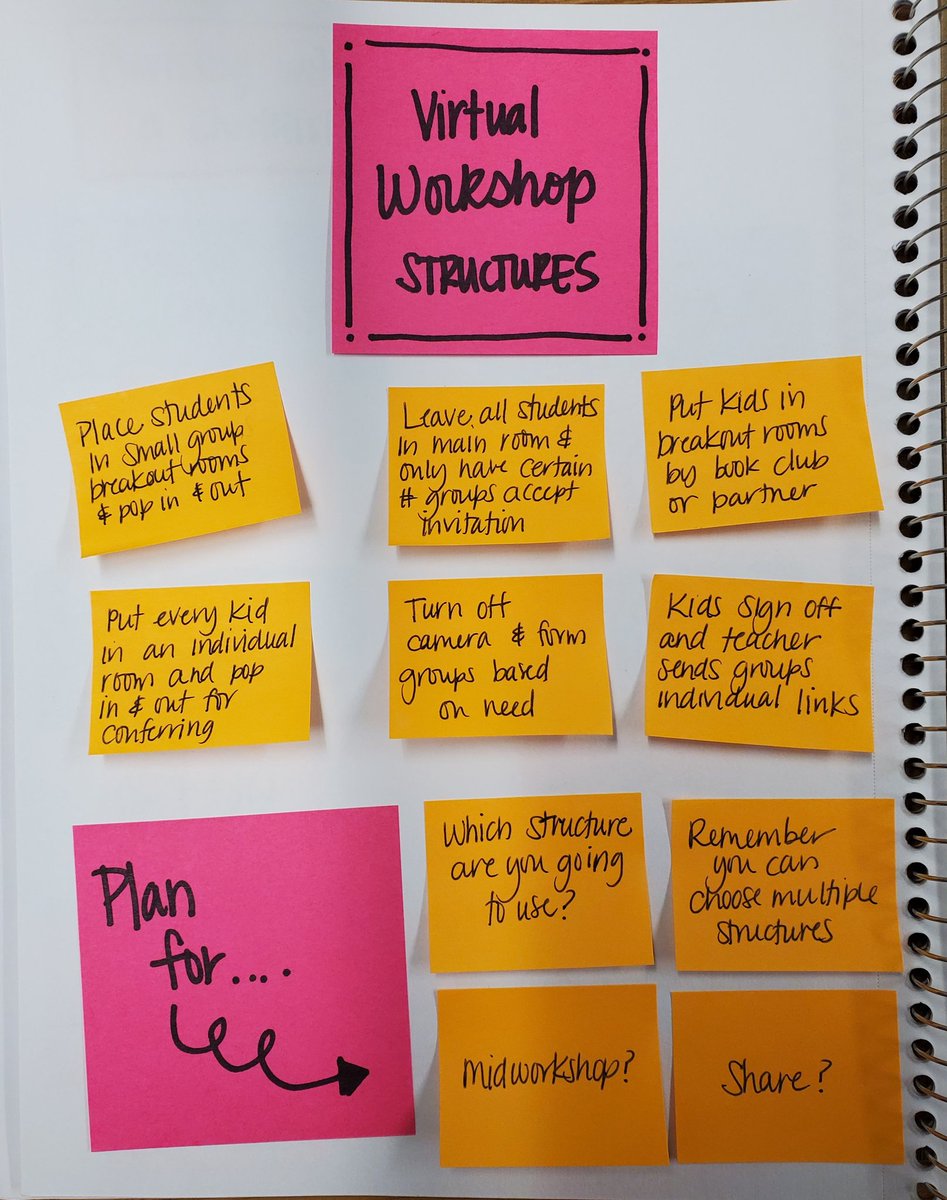 Virtual
Workshop
STRUCTURES
Place students
in small group
breakout rooms
& pop in & out
Leave all students
in main room &
only have certain
# groups accept
invitation
Put kids in
breakout rooms
by book club
or partner
Put every kid
in an individual
room and pop
in & out for
conferring
Turn off
camera & form
groups based
on need
Kids sign off
and teacher
sends groups
individual links
Plan
for....
Which structure
are you going
to use?
Remember
you can
choose multiple
structures
midworkshop?
Share?